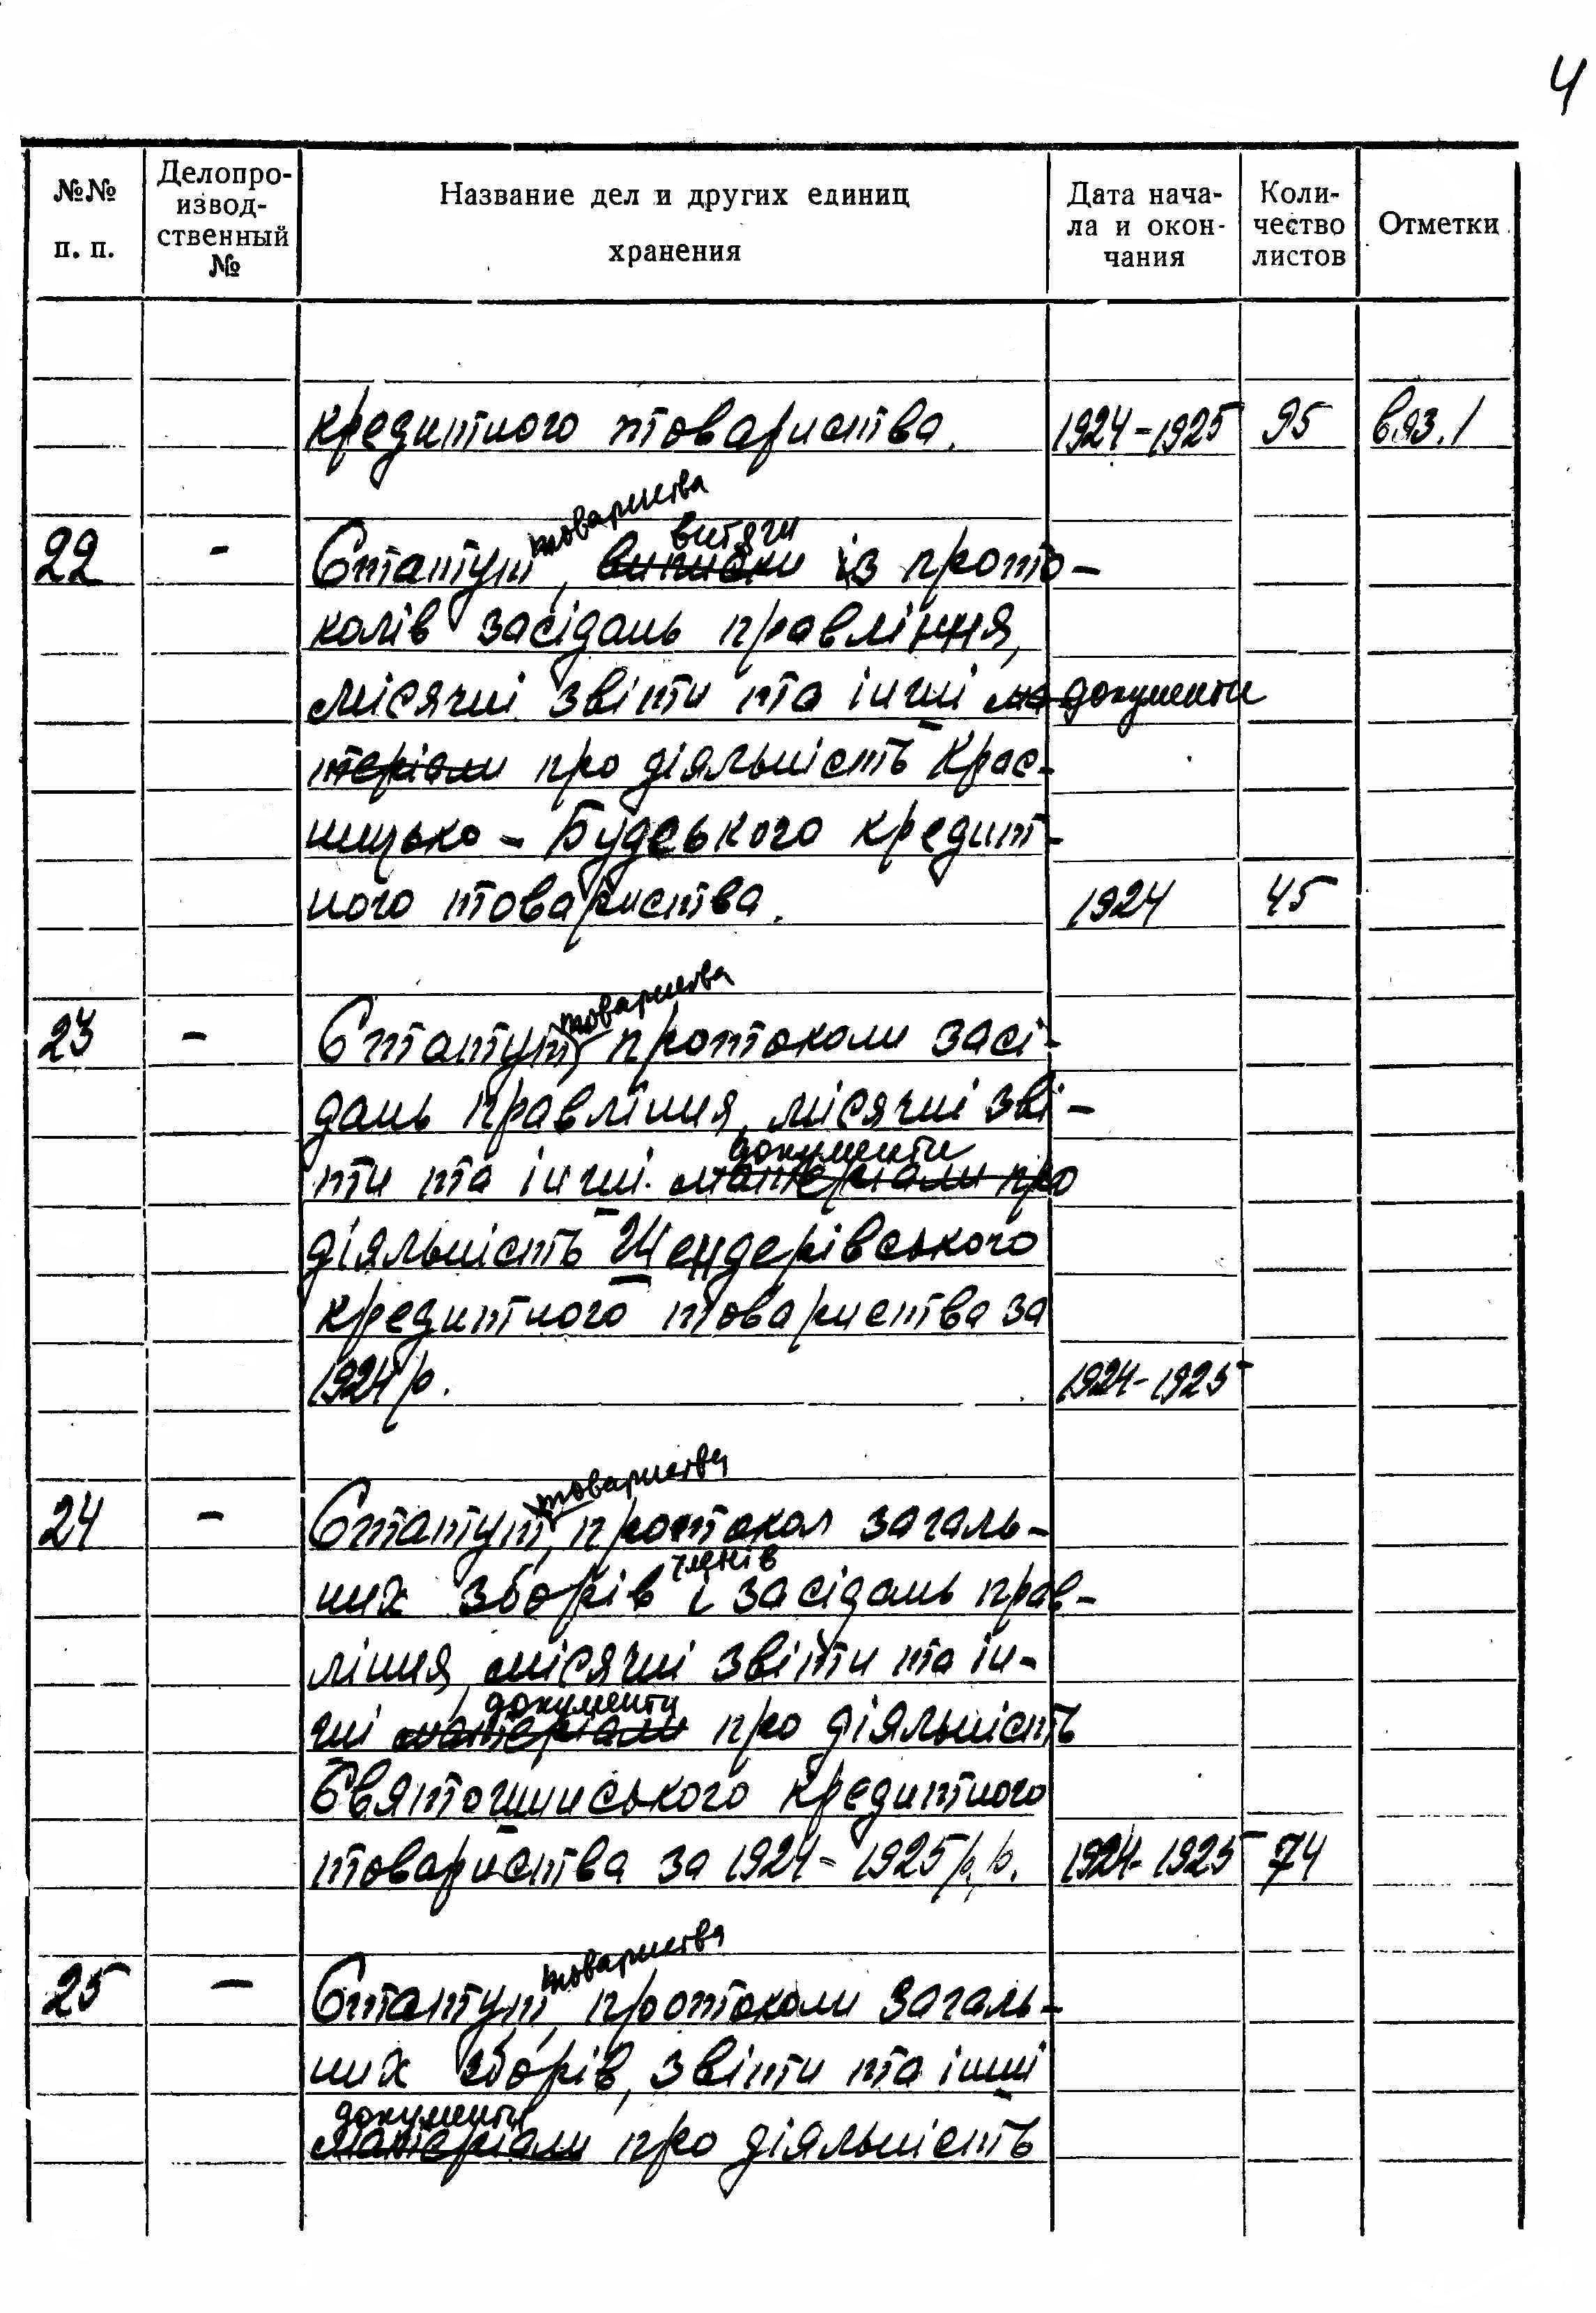 4
№№ п. п.
Делопроизводственный №
Название дел и других единиц хранения
Дата начала и окончания
Количество листов
Отметки
кредитного товариства. 1924-1925 95 вяз. 1
товариства
витяги
22 - Статут, виписки із прото-
колів засідань правління,
місячні звіти та інші ма документи
теріали про діяльність Крас-
ницько-Будського кредит-
ного товариства. 1924 45
товариства
23 - Статут, протоколи засі-
дань правління, місячні зві-
документи
ти та інші матеріали про
діяльність Шендерівського
кредитного товариства за
1924 р. 1924-1925
товариства
24 - Статут, протокол загаль-
членів
них зборів і засідань прав-
ління, місячні звіти та ін-
документи
ші матеріали про діяльність
Святошинського кредитного
товариства за 1924-1925 р.р. 1924-1925 74
товариства
25 - Статут, протоколи загаль-
них зборів, звіти та інші
документи
матеріали про діяльність